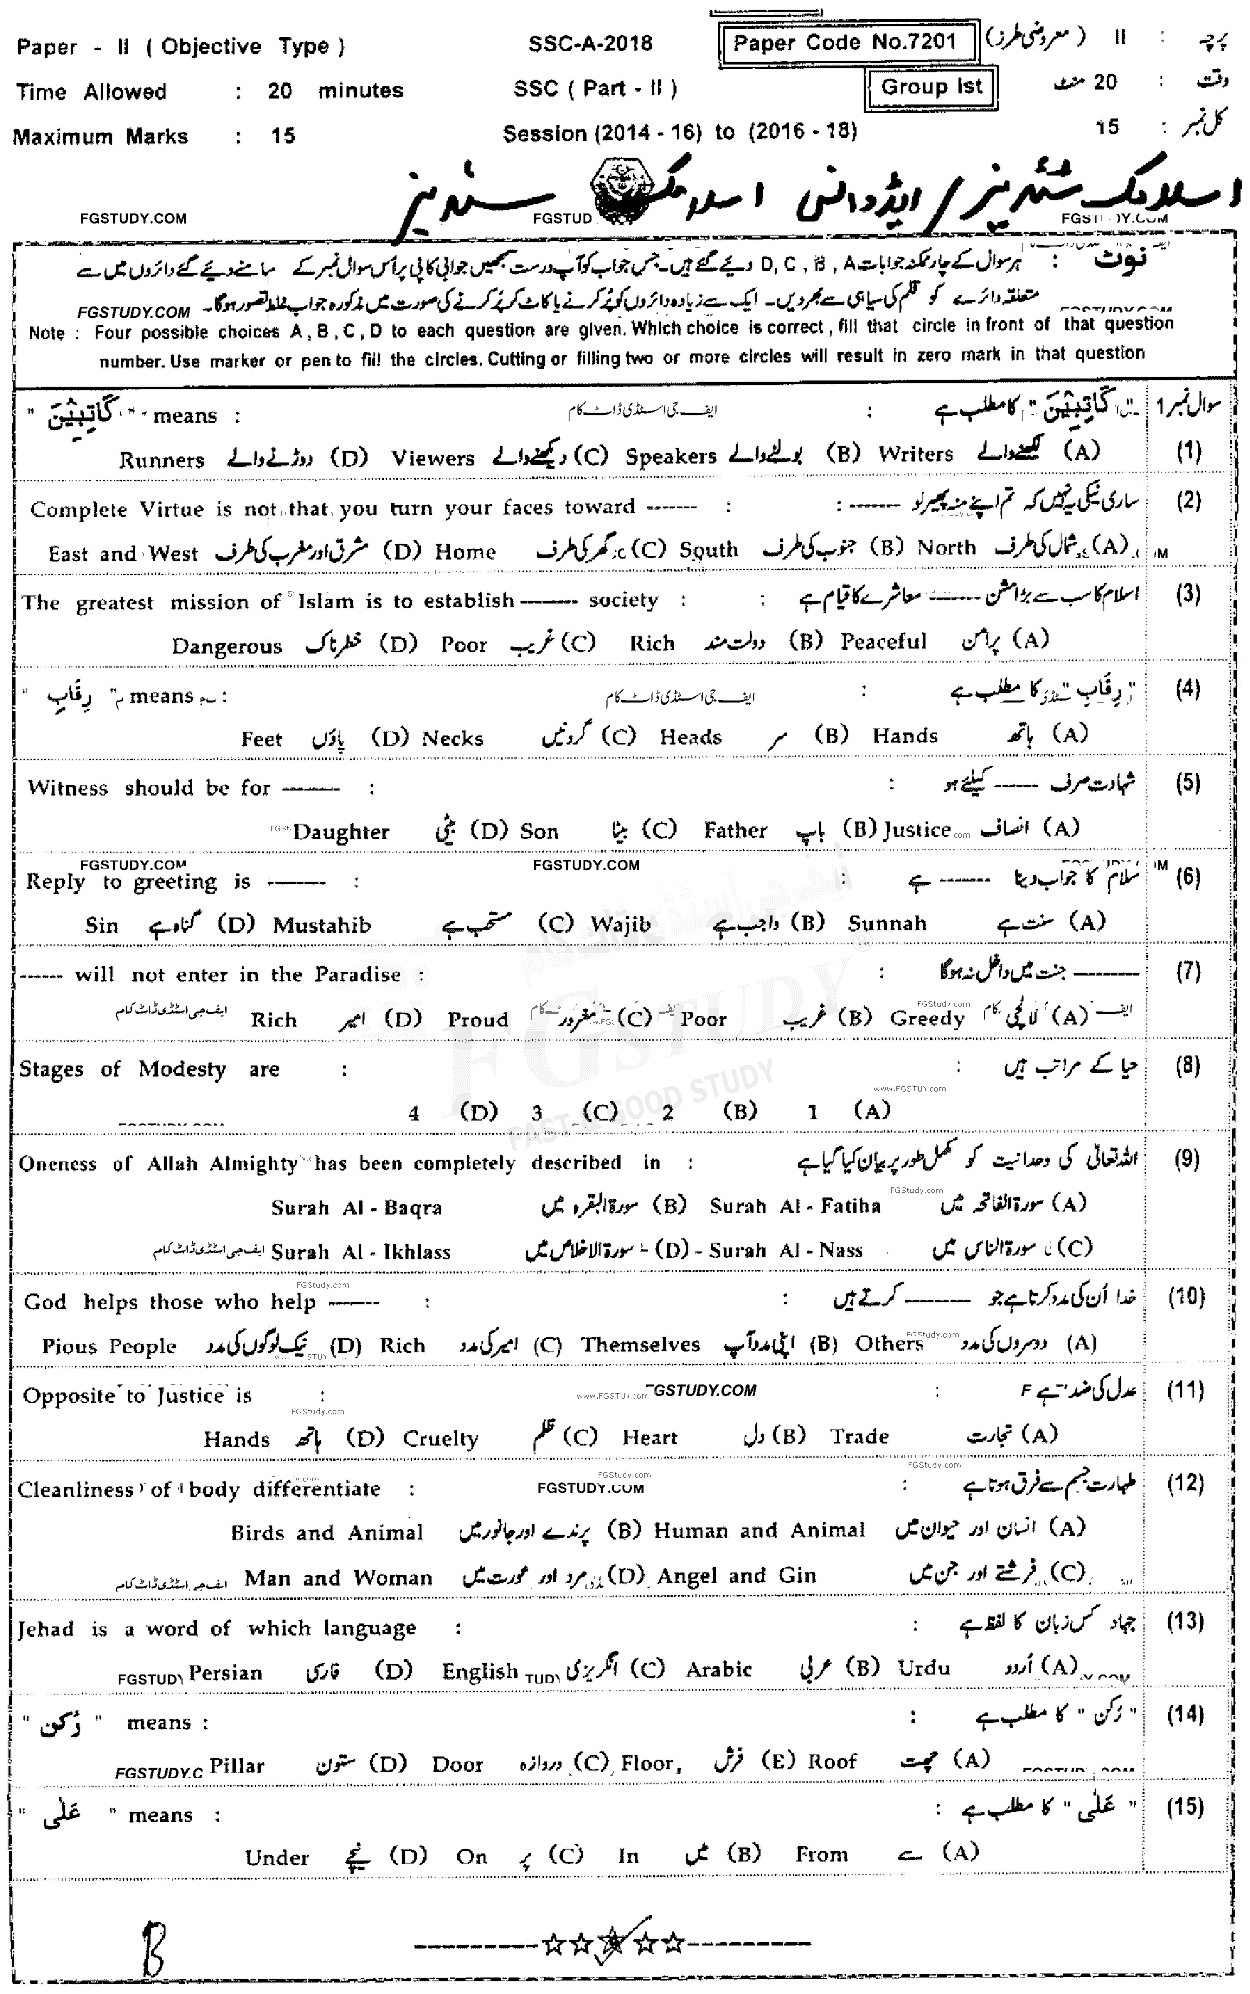 Paper - II ( Objective Type ) SSC-A-2018 Paper Code No.7201 پرچہ : II ( معروضی طرز)
Time Allowed : 20 minutes SSC ( Part - II ) Group Ist وقت : 20 منٹ
Maximum Marks : 15 Session (2014 - 16) to (2016 - 18) کل نمبر : 15
اسلامک سٹڈیز / ایڈوانس اسلامک سٹڈیز
FGSTUDY.COM FGSTUD FGSTUDY.COM
نوٹ : ہر سوال کے چار ممکنہ جوابات D, C , B , A دیے گئے ہیں۔ جس جواب کو آپ درست سمجھیں جوابی کاپی پر اُس سوال نمبر کے سامنے دیے گئے دائروں میں سے
متعلقہ دائرے کو قلم کی سیاہی سے بھر دیں۔ ایک سے زیادہ دائروں کو پُر کرنے یا کاٹ کر پُر کرنے کی صورت میں مذکورہ جواب غلط تصور ہوگا۔ FGSTUDY.COM
Note : Four possible choices A , B , C , D to each question are given. Which choice is correct , fill that circle in front of that question
number. Use marker or pen to fill the circles. Cutting or filling two or more circles will result in zero mark in that question
" کَاتِبِیْنَ " means : ایف جی اسٹڈی ڈاٹ کام : " کَاتِبِیْنَ " کا مطلب ہے سوال نمبر 1
Runners دوڑنے والے (D) Viewers دیکھنے والے (C) Speakers بولنے والے (B) Writers لکھنے والے (A) (1)
Complete Virtue is not that you turn your faces toward ------- : : ------- ساری نیکی یہ نہیں کہ تم اپنے منہ پھیر لو (2)
East and West مشرق اور مغرب کی طرف (D) Home گھر کی طرف (C) South جنوب کی طرف (B) North شمال کی طرف (A)
The greatest mission of Islam is to establish ------- society : : اسلام کا سب سے بڑا مشن ------- معاشرے کا قیام ہے (3)
Dangerous خطرناک (D) Poor غریب (C) Rich دولت مند (B) Peaceful پرامن (A)
" رِقَابِ " means : ایف جی اسٹڈی ڈاٹ کام : " رِقَابِ " کا مطلب ہے (4)
Feet پاؤں (D) Necks گردنیں (C) Heads سر (B) Hands ہاتھ (A)
Witness should be for ------- : : شہادت صرف ------ کیلئے ہو (5)
Daughter بیٹی (D) Son بیٹا (C) Father باپ (B) Justice انصاف (A)
FGSTUDY.COM FGSTUDY.COM
Reply to greeting is ------- : : سلام کا جواب دینا ------- ہے (6)
Sin گناہ ہے (D) Mustahib مستحب ہے (C) Wajib واجب ہے (B) Sunnah سنت ہے (A)
------ will not enter in the Paradise : : -------- جنت میں داخل نہ ہوگا (7)
ایف جی اسٹڈی ڈاٹ کام Rich امیر (D) Proud مغرور (C) Poor غریب (B) Greedy لالچی (A)
Stages of Modesty are : : حیا کے مراتب ہیں (8)
4 (D) 3 (C) 2 (B) 1 (A)
Oneness of Allah Almighty has been completely described in : اللہ تعالٰی کی وحدانیت کو مکمل طور پر بیان کیا گیا ہے (9)
Surah Al - Baqra سورۃ البقرہ میں (B) Surah Al - Fatiha سورۃ الفاتحہ میں (A)
ایف جی اسٹڈی ڈاٹ کام Surah Al - Ikhlass سورۃ الاخلاص میں (D) Surah Al - Nass سورۃ الناس میں (C)
God helps those who help ------- : : خدا اُن کی مدد کرتا ہے جو ------- کرتے ہیں (10)
Pious People نیک لوگوں کی مدد (D) Rich امیر کی مدد (C) Themselves اپنی مدد آپ (B) Others دوسروں کی مدد (A)
Opposite to Justice is : FGSTUDY.COM : عدل کی ضد ہے (11)
Hands ہاتھ (D) Cruelty ظلم (C) Heart دل (B) Trade تجارت (A)
Cleanliness of body differentiate : FGSTUDY.COM : طہارت جسم سے فرق ہوتا ہے (12)
Birds and Animal پرندے اور جانور میں (B) Human and Animal انسان اور حیوان میں (A)
ایف جی اسٹڈی ڈاٹ کام Man and Woman مرد اور عورت میں (D) Angel and Gin فرشتے اور جن میں (C)
Jehad is a word of which language : : جہاد کس زبان کا لفظ ہے (13)
Persian فارسی (D) English انگریزی (C) Arabic عربی (B) Urdu اُردو (A)
" رُکن " means : : " رُکن " کا مطلب ہے (14)
Pillar ستون (D) Door دروازہ (C) Floor, فرش (E) Roof چھت (A)
" عَلٰی " means : : " عَلٰی " کا مطلب ہے (15)
Under نیچے (D) On پر (C) In میں (B) From سے (A)
B
FGSTUDY
FAST & GOOD STUDY